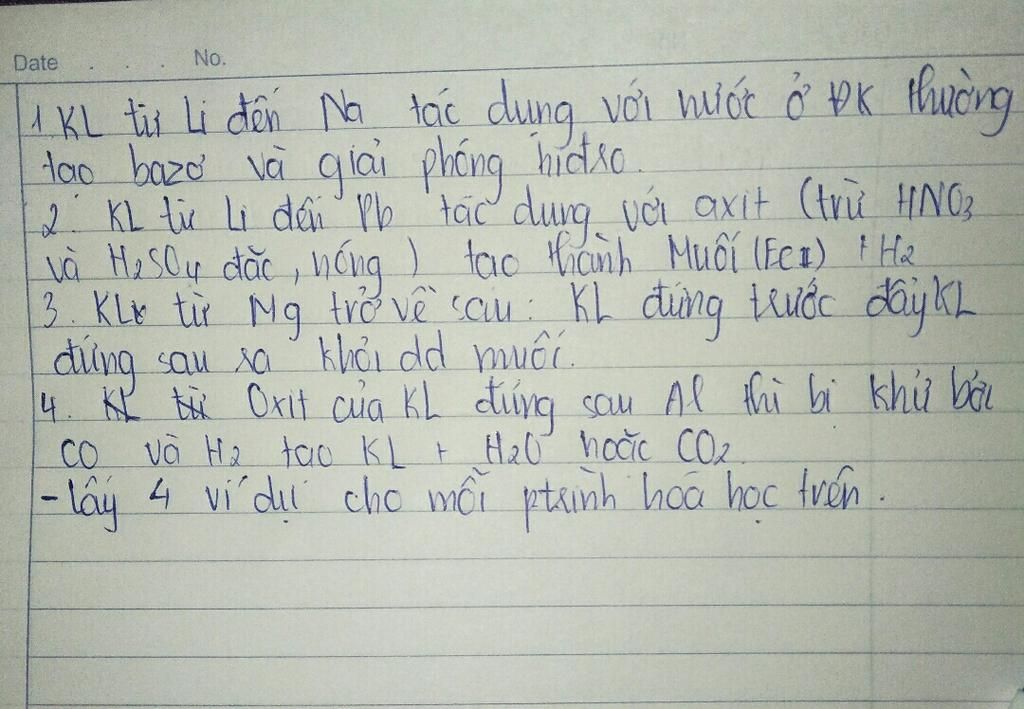 Date . . . No.
1. KL từ Li đến Na tác dụng với nước ở ĐK thường
tạo bazơ và giải phóng hiđro.
2. KL từ Li đến Pb tác dụng với axit (trừ HNO3
và H2SO4 đặc, nóng) tạo thành Muối (FeII) + H2
3. KL từ Mg trở về sau: KL đứng trước đẩy KL
đứng sau ra khỏi dd muối.
4. KL từ Oxit của KL đứng sau Al thì bị khử bởi
CO và H2 tạo KL + H2O hoặc CO2
- lấy 4 ví dụ cho mỗi ptrình hóa học trên.